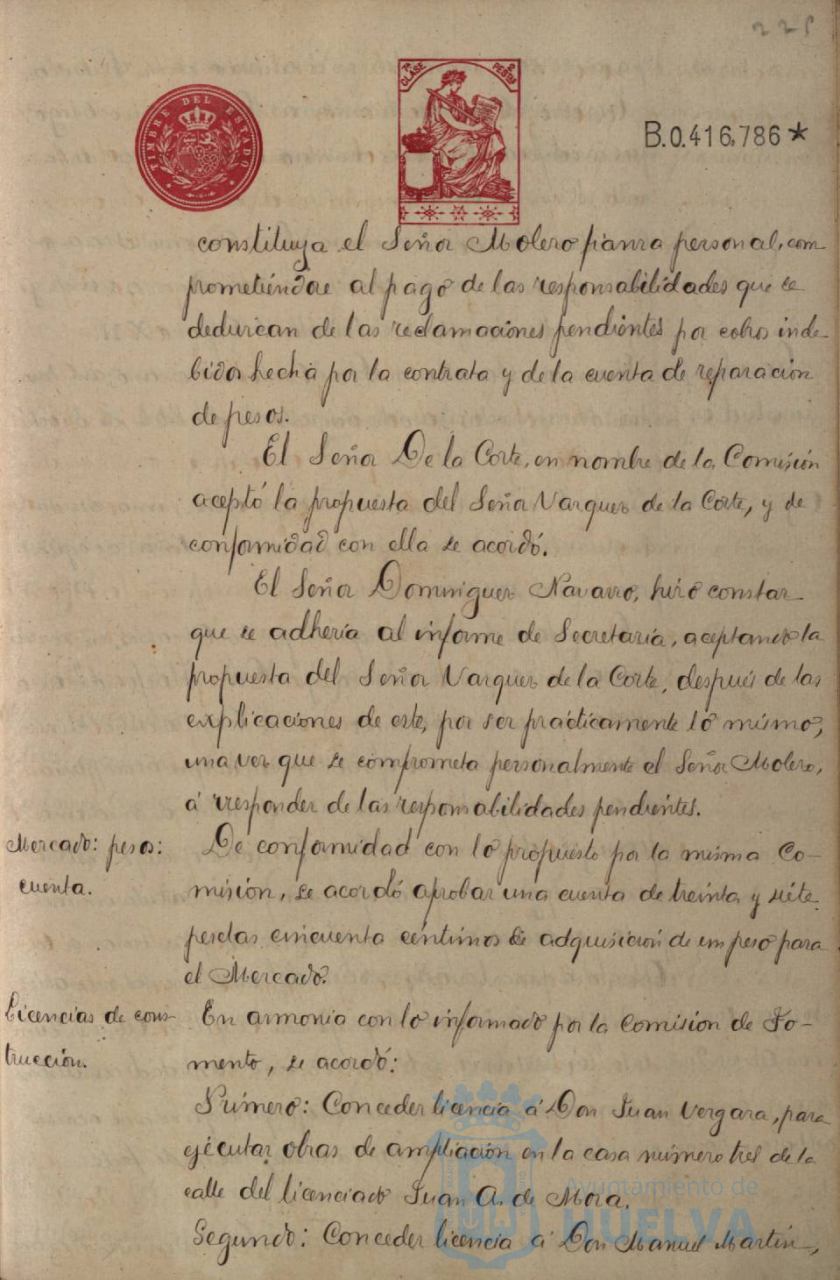 225
TIMBRE DEL ESTADO
7ª CLASE 2 PESTAS
B.0.416,786*
constituya el Señor Molero fianza personal, com-
prometiéndose al pago de las responsabilidades que se
deduzcan de las reclamaciones pendientes por cobros inde-
bidos hecha por la contrata y de la cuenta de reparación
de pesos.
El Señor De la Corte, en nombre de la Comisión
aceptó la propuesta del Señor Vazquez de la Corte, y de
conformidad con ella se acordó.
El Señor Dominguez Navarro, hizo constar
que se adhería al informe de Secretaría, aceptando la
propuesta del Señor Vazquez de la Corte, después de las
explicaciones de este, por ser prácticamente lo mismo,
una vez que se comprometa personalmente el Señor Molero,
á responder de las responsabilidades pendientes.
Mercado: pesos:
cuenta.
De conformidad con lo propuesto por la misma Co-
misión, se acordó aprobar una cuenta de treinta y siete
pesetas cincuenta céntimos de adquisición de un peso para
el Mercado.
Licencias de cons-
trucción.
En armonía con lo informado por la Comisión de Fo-
mento, se acordó:
Primero: Conceder licencia á Don Juan Vergara, para
ejecutar obras de ampliación en la casa número tres de la
calle del licenciado Juan A. de Mora.
Segundo: Conceder licencia á Don Manuel Martín,
Ayuntamiento de
HUELVA